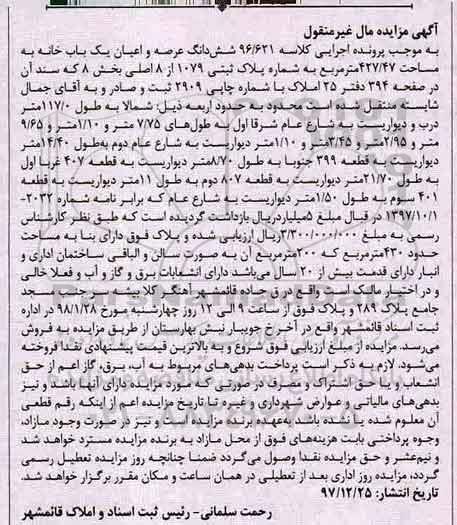 آگهی مزایده مال غیرمنقول
به موجب پرونده اجرایی کلاسه ۹۶/۶۲۱ شش‌دانگ عرصه و اعیان یک باب خانه به
مساحت ۴۲۷/۴۷مترمربع به شماره پلاک ثبتی ۱۰۷۹ از ۸ اصلی بخش ۸ که سند آن
در صفحه ۳۹۴ دفتر ۲۵ املاک با شماره چاپی ۲۹۰۹ ثبت و صادر و به آقای جمال
شایسته منتقل شده است محدود به حدود اربعه ذیل: شمالا به طول ۱۱/۰۷متر
درب و دیواریست به شارع عام شرقا اول به طول‌های ۷/۷۵ متر و ۱/۱۰متر و ۹/۶۵
متر و ۲/۹۵متر و ۳/۴۵متر و ۱/۱۰متر دیواریست به شارع عام دوم به‌طول ۱۴/۴۰متر
دیواریست به قطعه ۳۹۹ جنوبا به طول ۸/۷۰متر دیواریست به قطعه ۴۰۷ غربا اول
به طول ۲۱/۷۰متر دیواریست به قطعه ۸۰۷ دوم به طول ۱۱متر دیواریست به قطعه
۴۰۱ سوم به طول ۱/۵۰متر دیواریست به شارع عام که برابر نامه شماره ۲۰۳۲-
۱۳۹۷/۱۰/۱ در قبال مبلغ ۵میلیاردریال بازداشت گردیده است که طبق نظر کارشناس
رسمی به مبلغ ۳/۳۰۰/۰۰۰/۰۰۰ریال ارزیابی شده و پلاک فوق دارای بنا به مساحت
حدود ۴۳۰مترمربع که ۲۰۰مترمربع آن به صورت سالن و الباقی ساختمان اداری و
انبار دارای قدمت بیش از ۲۰ سال می‌باشد دارای انشعابات برق و گاز و آب و فعلا خالی
و در اختیار مالک است واقع در ق جاده قائمشهر آهنگر کلا بیشه سر جنب مسجد
جامع پلاک ۲۸۹ و پلاک فوق از ساعت ۹ الی ۱۲ روز چهارشنبه مورخ ۹۸/۱/۲۸ در اداره
ثبت اسناد قائمشهر واقع در آخرخ جویبار نبش بهارستان از طریق مزایده به فروش
می‌رسد. مزایده از مبلغ ارزیابی فوق شروع و به بالاترین قیمت پیشنهادی نقدا فروخته
می‌شود. لازم به ذکر است پرداخت بدهی‌های مربوط به آب، برق، گاز اعم از حق
انشعاب و یا حق اشتراک و مصرف در صورتی که مورد مزایده دارای آنها باشد و نیز
بدهی‌های مالیاتی و عوارض شهرداری و غیره تا تاریخ مزایده اعم از اینکه رقم قطعی
آن معلوم شده یا نشده باشد بعهده برنده مزایده است و نیز در صورت وجود مازاد،
وجوه پرداختی بابت هزینه‌های فوق از محل مازاد به برنده مزایده مسترد خواهد شد
و نیم‌عشر و حق مزایده نقدا وصول می‌گردد ضمنا چنانچه روز مزایده تعطیل رسمی
گردد، مزایده روز اداری بعد از تعطیلی در همان ساعت و مکان مقرر برگزار خواهد شد.
تاریخ انتشار: ۹۷/۱۲/۲۵
رحمت سلمانی- رئیس ثبت اسناد و املاک قائمشهر